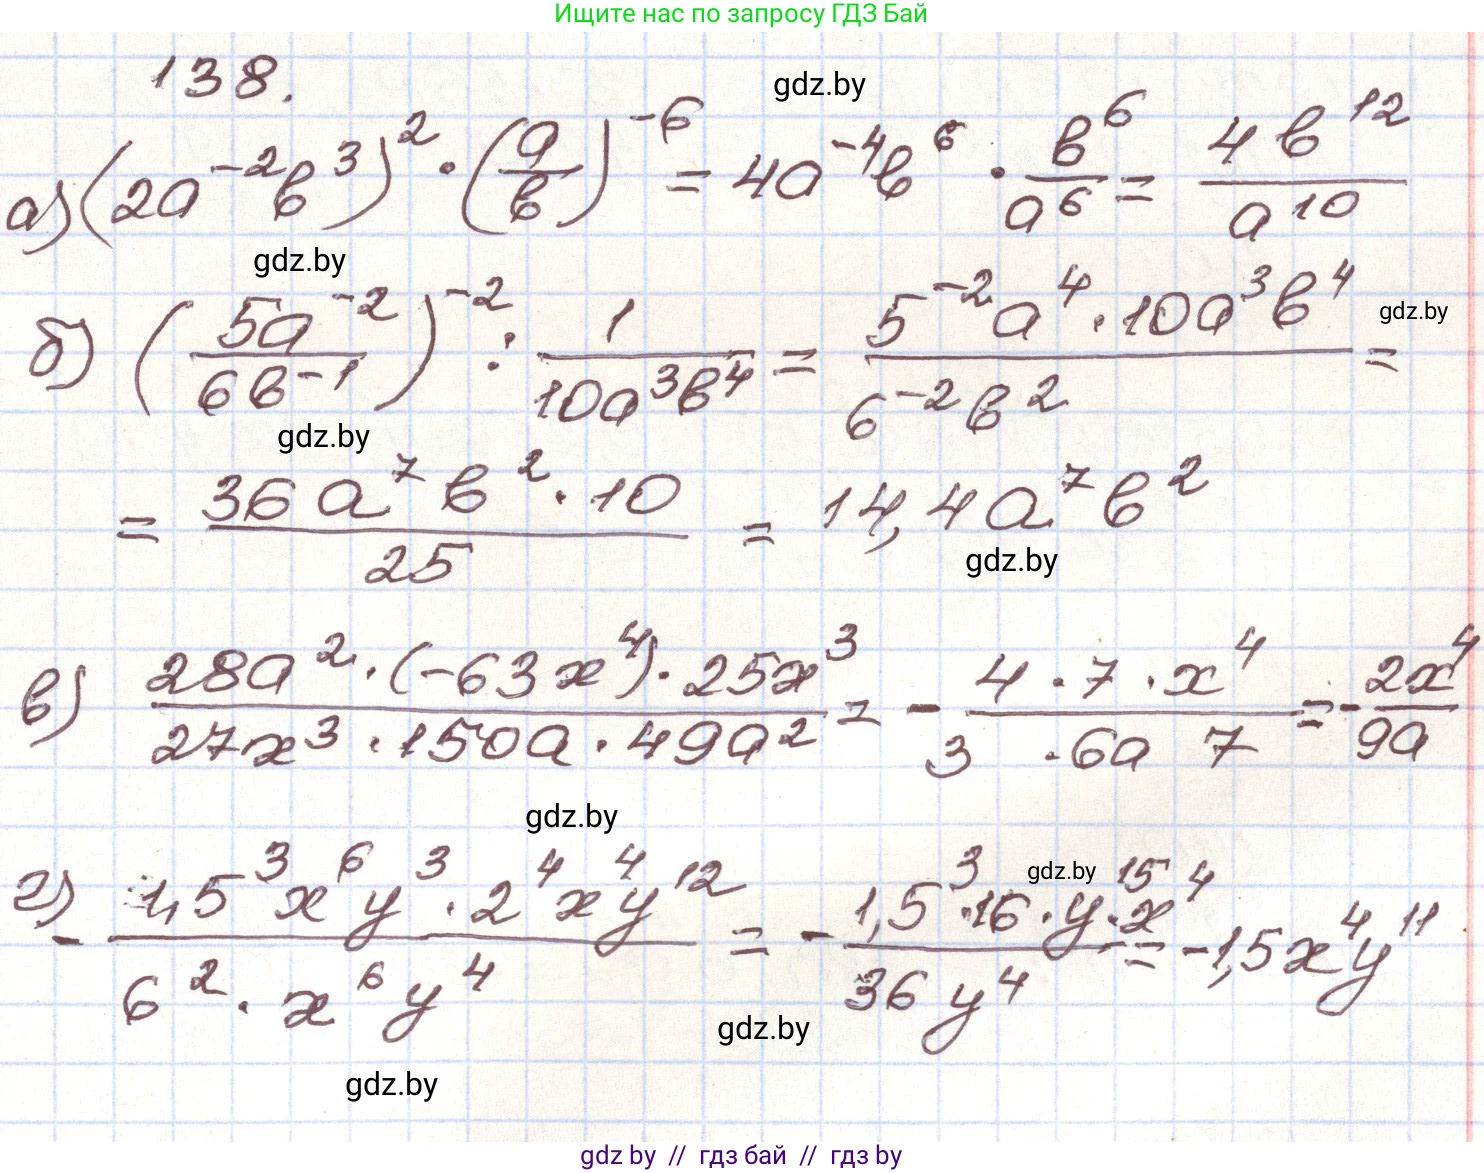 Ищите нас по запросу ГДЗ Бай
138.
gdz.by
а) (2a⁻²b³)² · (a/b)⁻⁶ = 4a⁻⁴b⁶ · b⁶/a⁶ = 4b¹²/a¹⁰
gdz.by
б) (5a⁻²/6b⁻¹)⁻² : 1/10a³b⁴ = 5⁻²a⁴·10a³b⁴/6⁻²b² =
gdz.by
gdz.by
= 36a⁷b²·10/25 = 14,4a⁷b²
gdz.by
в) 28a²·(-63x⁴)·25x³/27x³·150a·49a² = - 4·7·x⁴/3·6a 7 = - 2x⁴/9a
gdz.by
г) - 1,5³x⁶y³·2⁴x⁴y¹²/6²·x⁶y⁴ = - 1,5³·16·y¹⁵·x⁴/36y⁴ = -1,5x⁴y¹¹
gdz.by
gdz.by
gdz.by
gdz by // гдз бай // гдз by